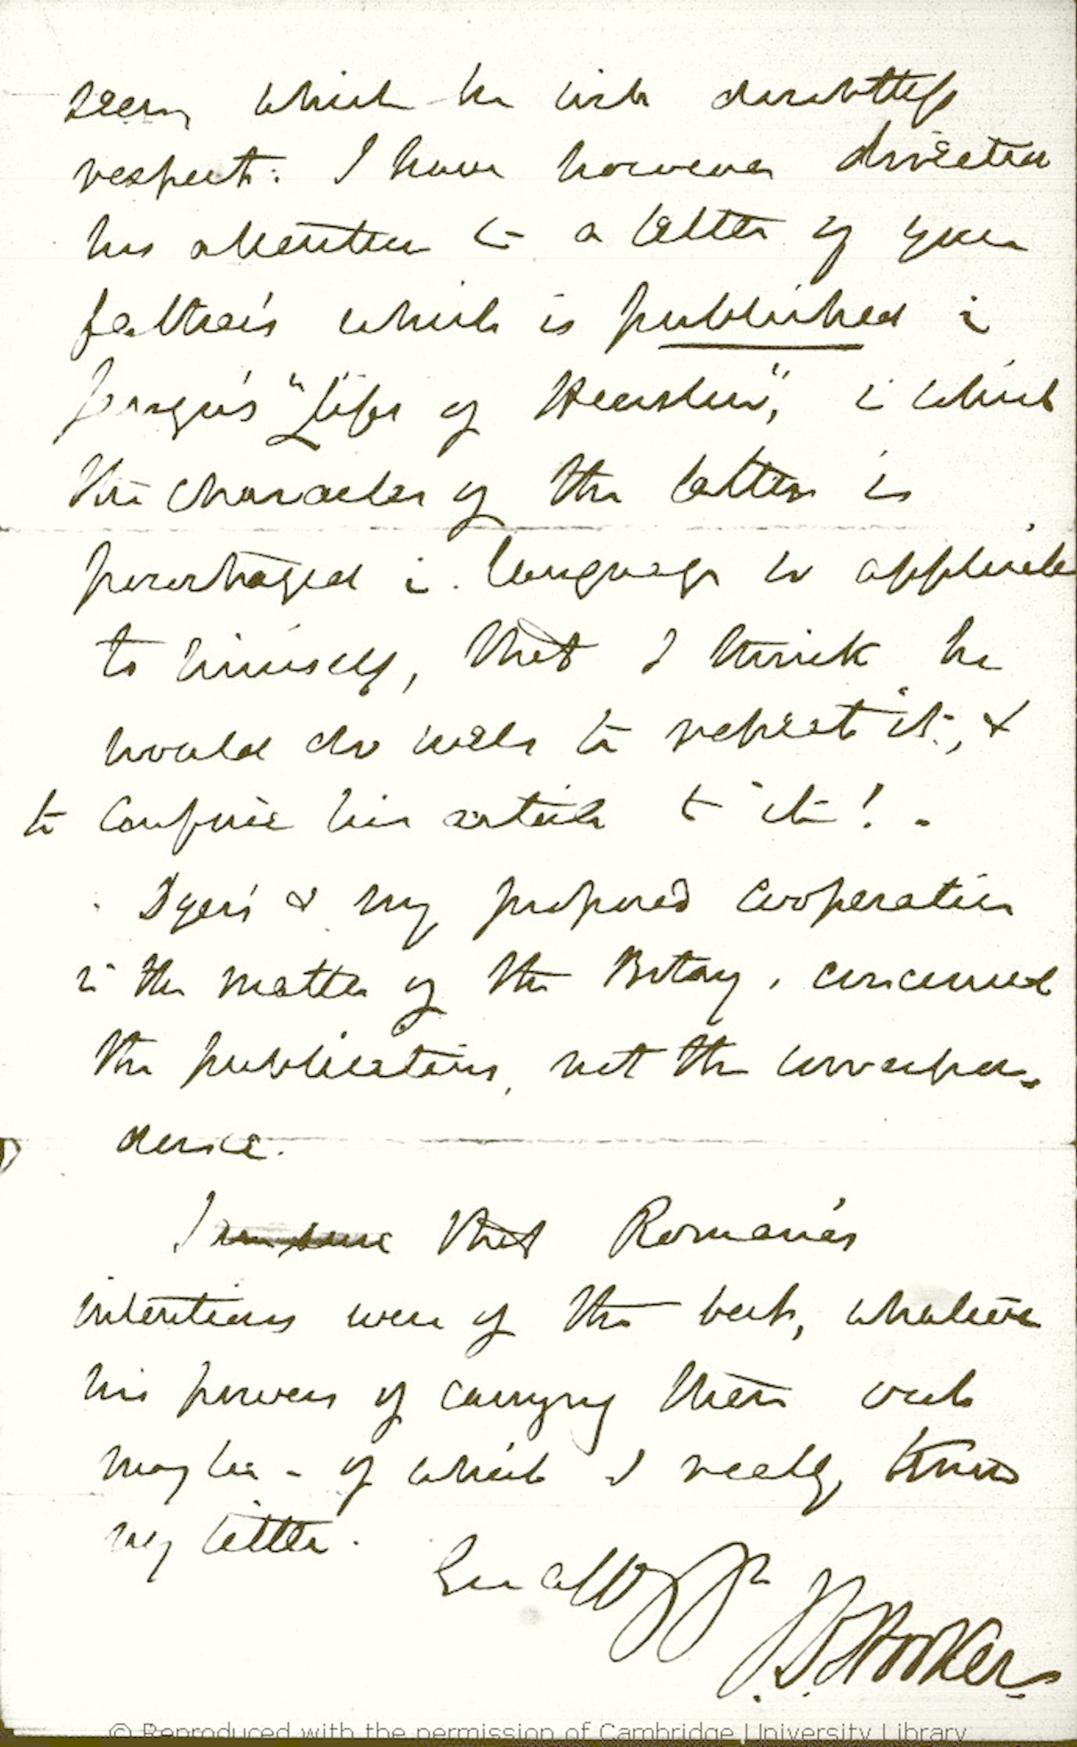 seem, which he will doubtless
respect. I have however directed
his attention to a letter of your
father's which is published in
Jenyns's "Life of Henslow", in which
the character of the latter is
pourtrayed in language so applicable
to himself, that I think he
would do well to repeat it, &
to confine his article to it! -
Dyer's & my proposed cooperation
in the matter of the Botany, concerned
the publication, not the correspon-
dence.
I am sure that Romanes
intentions were of the best, whatever
his powers of carrying them out
may be - of which I really know
very little.
Ever aff yrs
J.D. Hooker
© Reproduced with the permission of Cambridge University Library